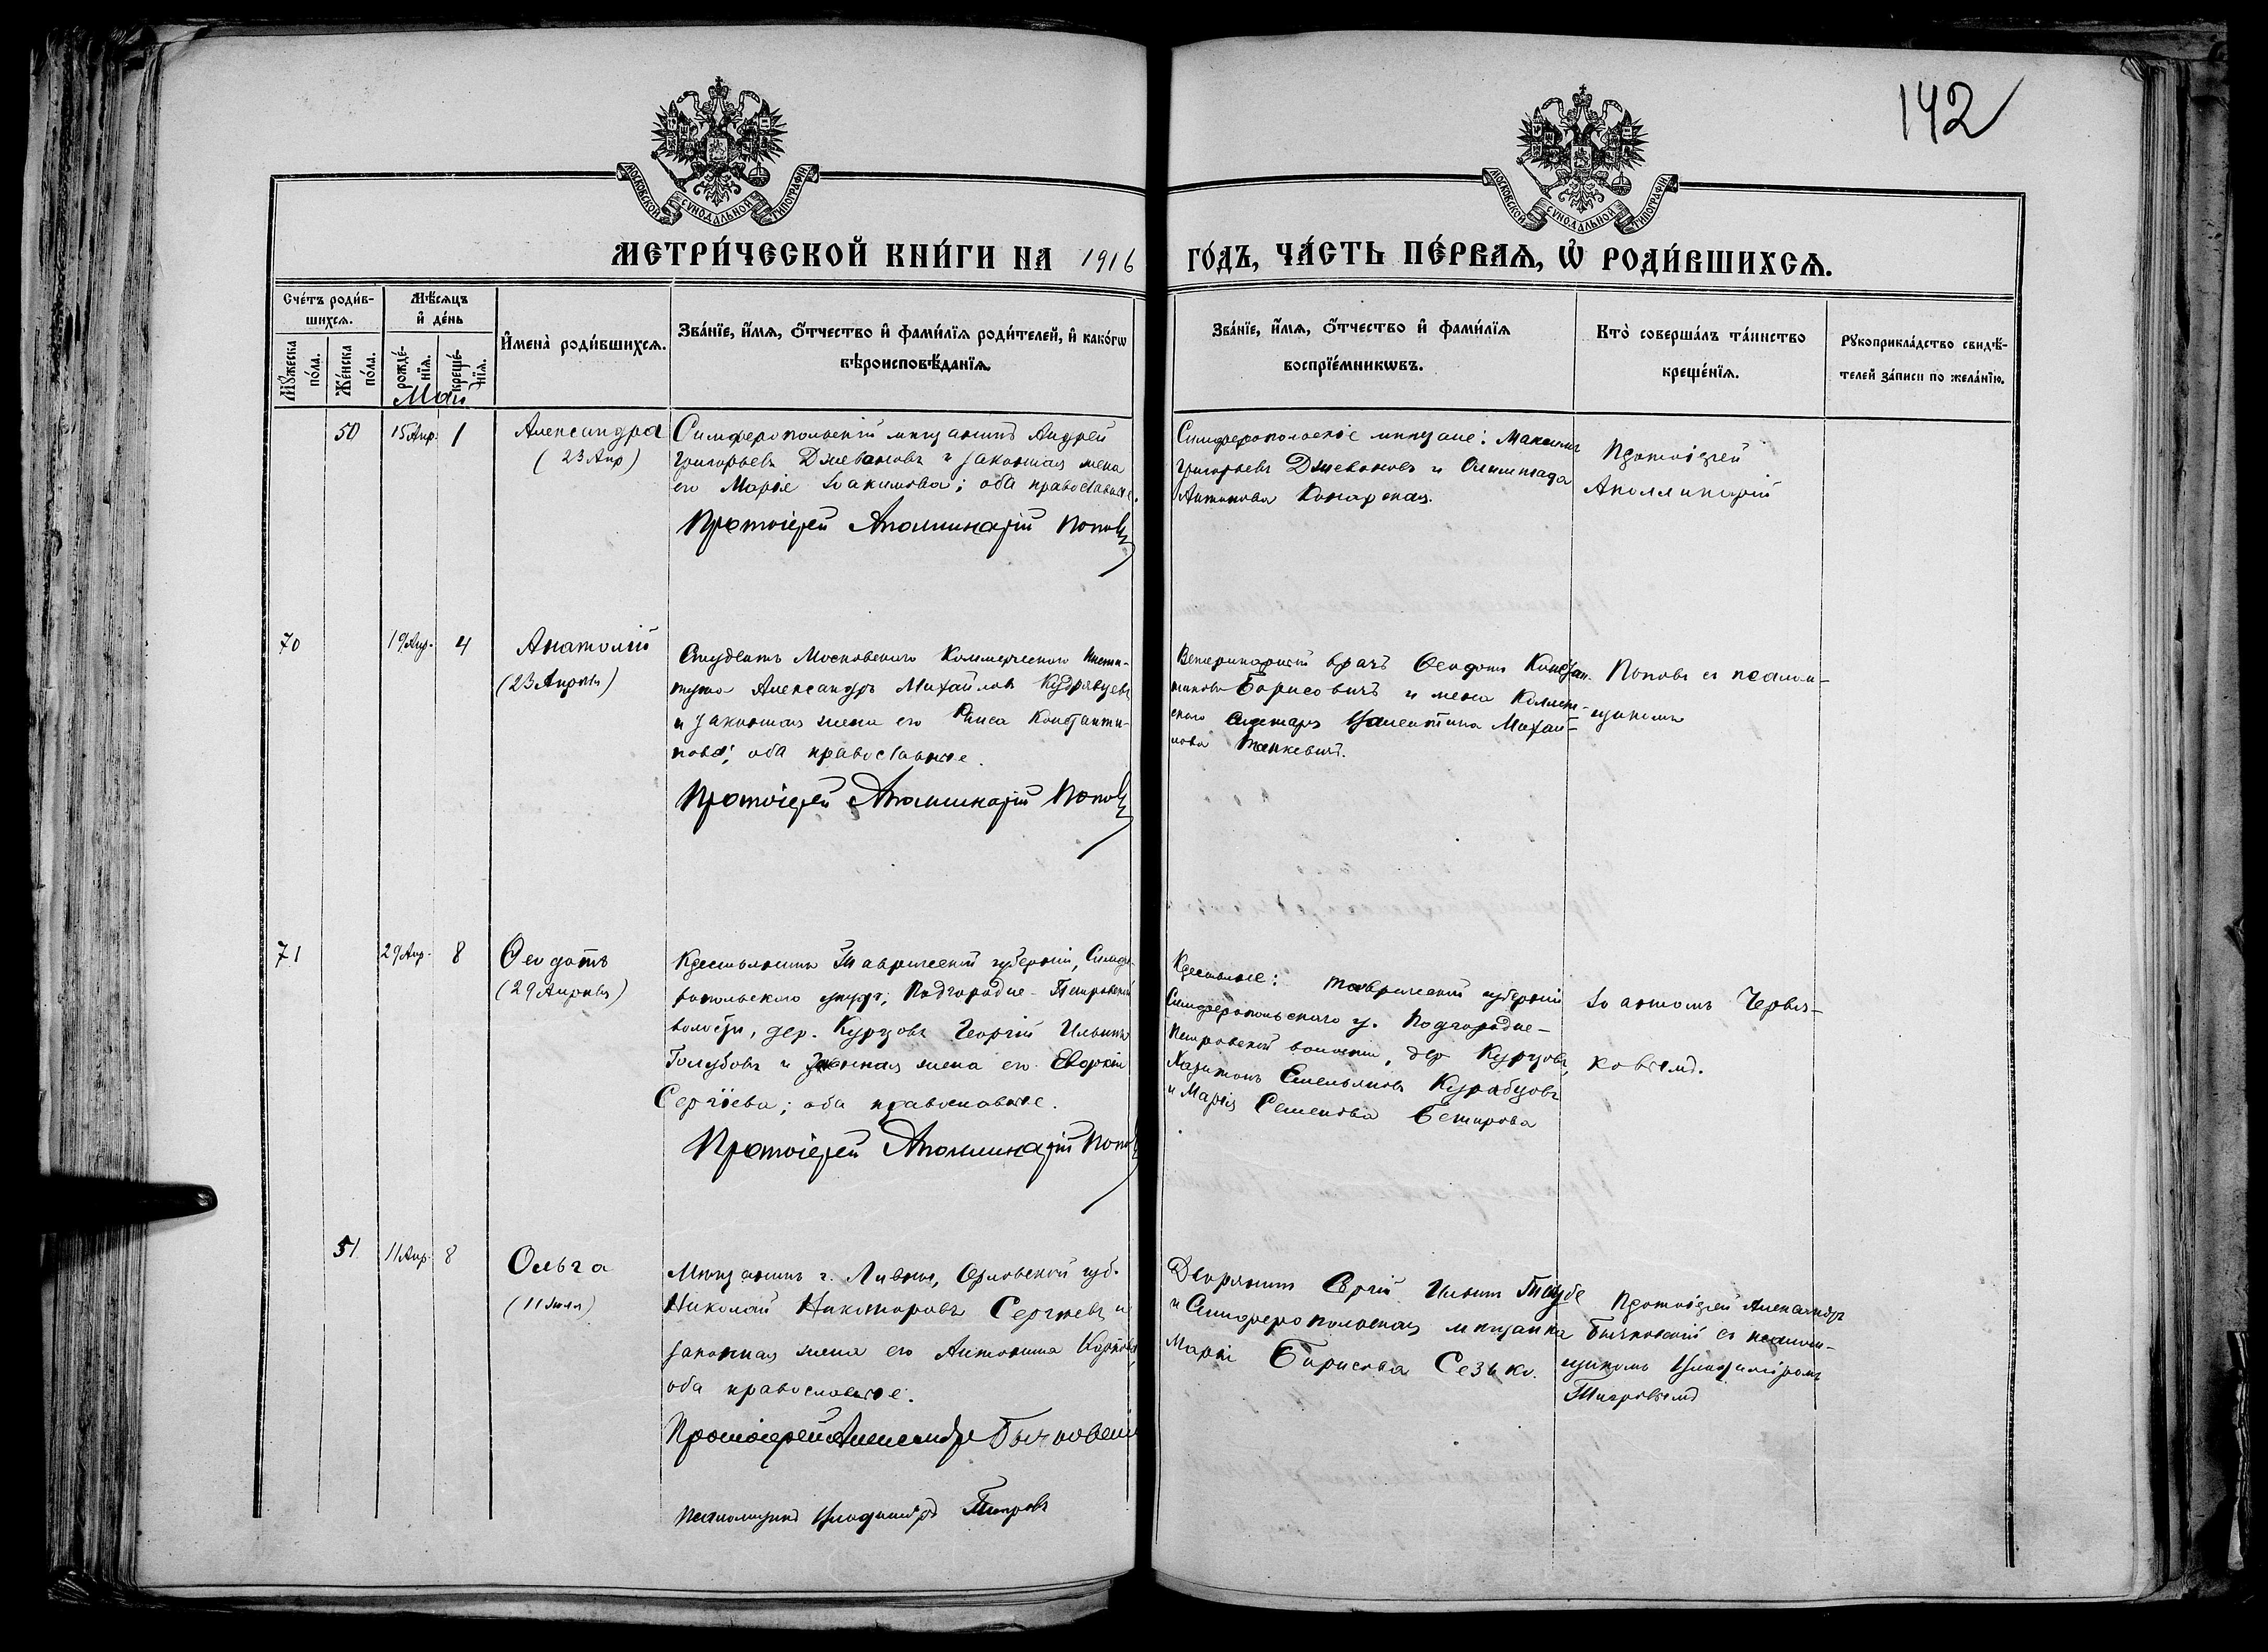 142
МОСКОВСКОЙ СУНОДАЛЬНОЙ ТИПОГРАФІИ
МОСКОВСКОЙ СУНОДАЛЬНОЙ ТИПОГРАФІИ
МЕТРИ́ЧЕСКОЙ КНИ́ГИ НА 1916
ГО́ДЪ, ЧА́СТЬ ПЕ́РВАѦ, Ѡ҆ РОДИ́ВШИХСѦ.
Сче́тъ роди́в-
шихсѧ.
Мꙋ́жеска по́ла.
Же́нска по́ла.
Мѣ́сѧцъ
и҆ де́нь
рожде́-
нїѧ.
креще́-
нїѧ.
Май
И҆мена̀ роди́вшихсѧ.
Зва́нїе, и҆́мѧ, ѻ҆́тчество и҆ фами́лїѧ роди́телей, и҆ како́гѡ
вѣроисповѣ́данїѧ.
Зва́нїе, и҆́мѧ, ѻ҆́тчество и҆ фами́лїѧ
воспрїе́мникѡвъ.
Кто̀ соверша́лъ та́инство
креще́нїѧ.
Рꙋкоприкла́дство свидѣ́-
телей за́писи по жела́нїю.
50
15 Апр.
1
Александра
(23 Апр)
Симферопольскій мѣщанинъ Андрей
Григорьевъ Джевановъ и законная жена
его Марія Іоакимова; оба православные.
Протоіерей Аполлинарій Поповъ
Симферопольскіе мѣщане: Максимъ
Григорьевъ Джевановъ и Олимпіада
Антонова Конарская.
Протоіерей
Аполлинарій
70
19 Апр.
4
Анатолій
(23 Апрѣля)
Студентъ Московскаго Коммерческаго Инсти-
тута Александръ Михайловъ Кудрявцевъ
и законная жена его Раиса Константи-
нова; оба православные.
Протоіерей Аполлинарій Поповъ
Ветеринарный врачъ Ѳеодотъ Констан-
тиновъ Борисовичъ и жена Коллеж-
скаго секретаря Валентина Михай-
лова
Поповъ съ псалом-
щикомъ
71
29 Апр.
8
Ѳеодотъ
(29 Апрѣля)
Крестьянинъ Таврической губерніи, Симфе-
ропольскаго уѣзда, Подгородне-Петровской
волости, дер. Курцовъ Георгій Ильинъ
Голубовъ и законная жена его Евдокія
Сергіева; оба православные.
Протоіерей Аполлинарій Поповъ
Крестьяне: Таврической губерніи
Симферопольскаго у. Подгородне-
Петровской волости, дер Курцовъ,
Харитонъ Емельяновъ
и Марія Семенова
Іоанномъ Червя-
ковымъ.
51
11 Апр.
8
Ольга
(11 Іюля)
Мѣщанинъ г. Ливны, Орловской губ.
Николай Никаноровъ Сергѣевъ и
законная жена его Антонина Карпова,
оба православные.
Протоіерей Александръ Бычковскій
Псаломщикъ Владиміръ Тигровъ
Дворянинъ Сергій Ильинъ
и Симферопольская мѣщанка
Марія Борисова
Протоіерей Александръ
Бычковскій съ псалом-
щикомъ Владиміромъ
Тигровымъ